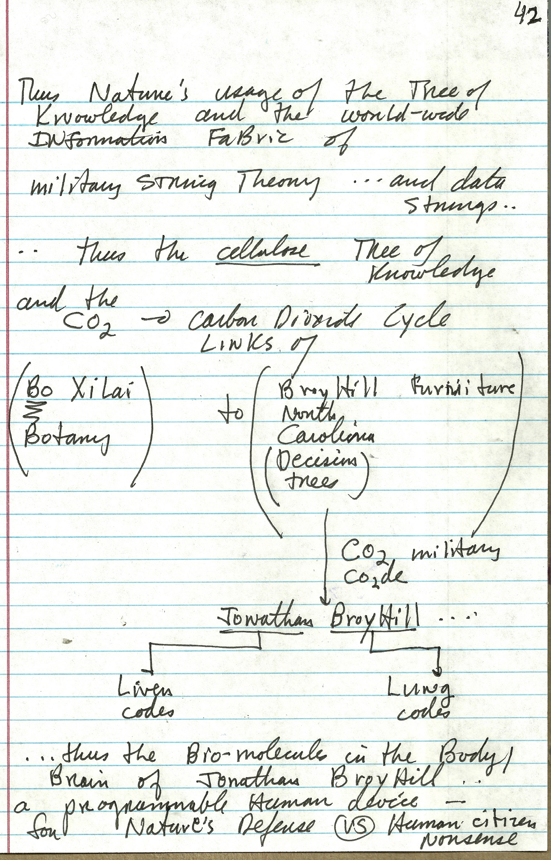 42
Thus Nature's usage of the Tree of
Knowledge and the world-wide
INformation FaBric of
military String Theory ... and data
Strings..
.. thus the cellulose Tree of
Knowledge
and the
CO2 → Carbon Dioxide Cycle
LINKS of
(Bo XiLai to (BroyHill Furniture
Botany) North
Carolina
(Decision
trees)
CO2 military
CO2de
Jonathan BroyHill ....
Liver Lung
codes codes
...thus the Bio-molecules in the Body/
Brain of Jonathan BroyHill ..
a programmable Human device —
for Nature's Defense (VS) Human citizen
Nonsense